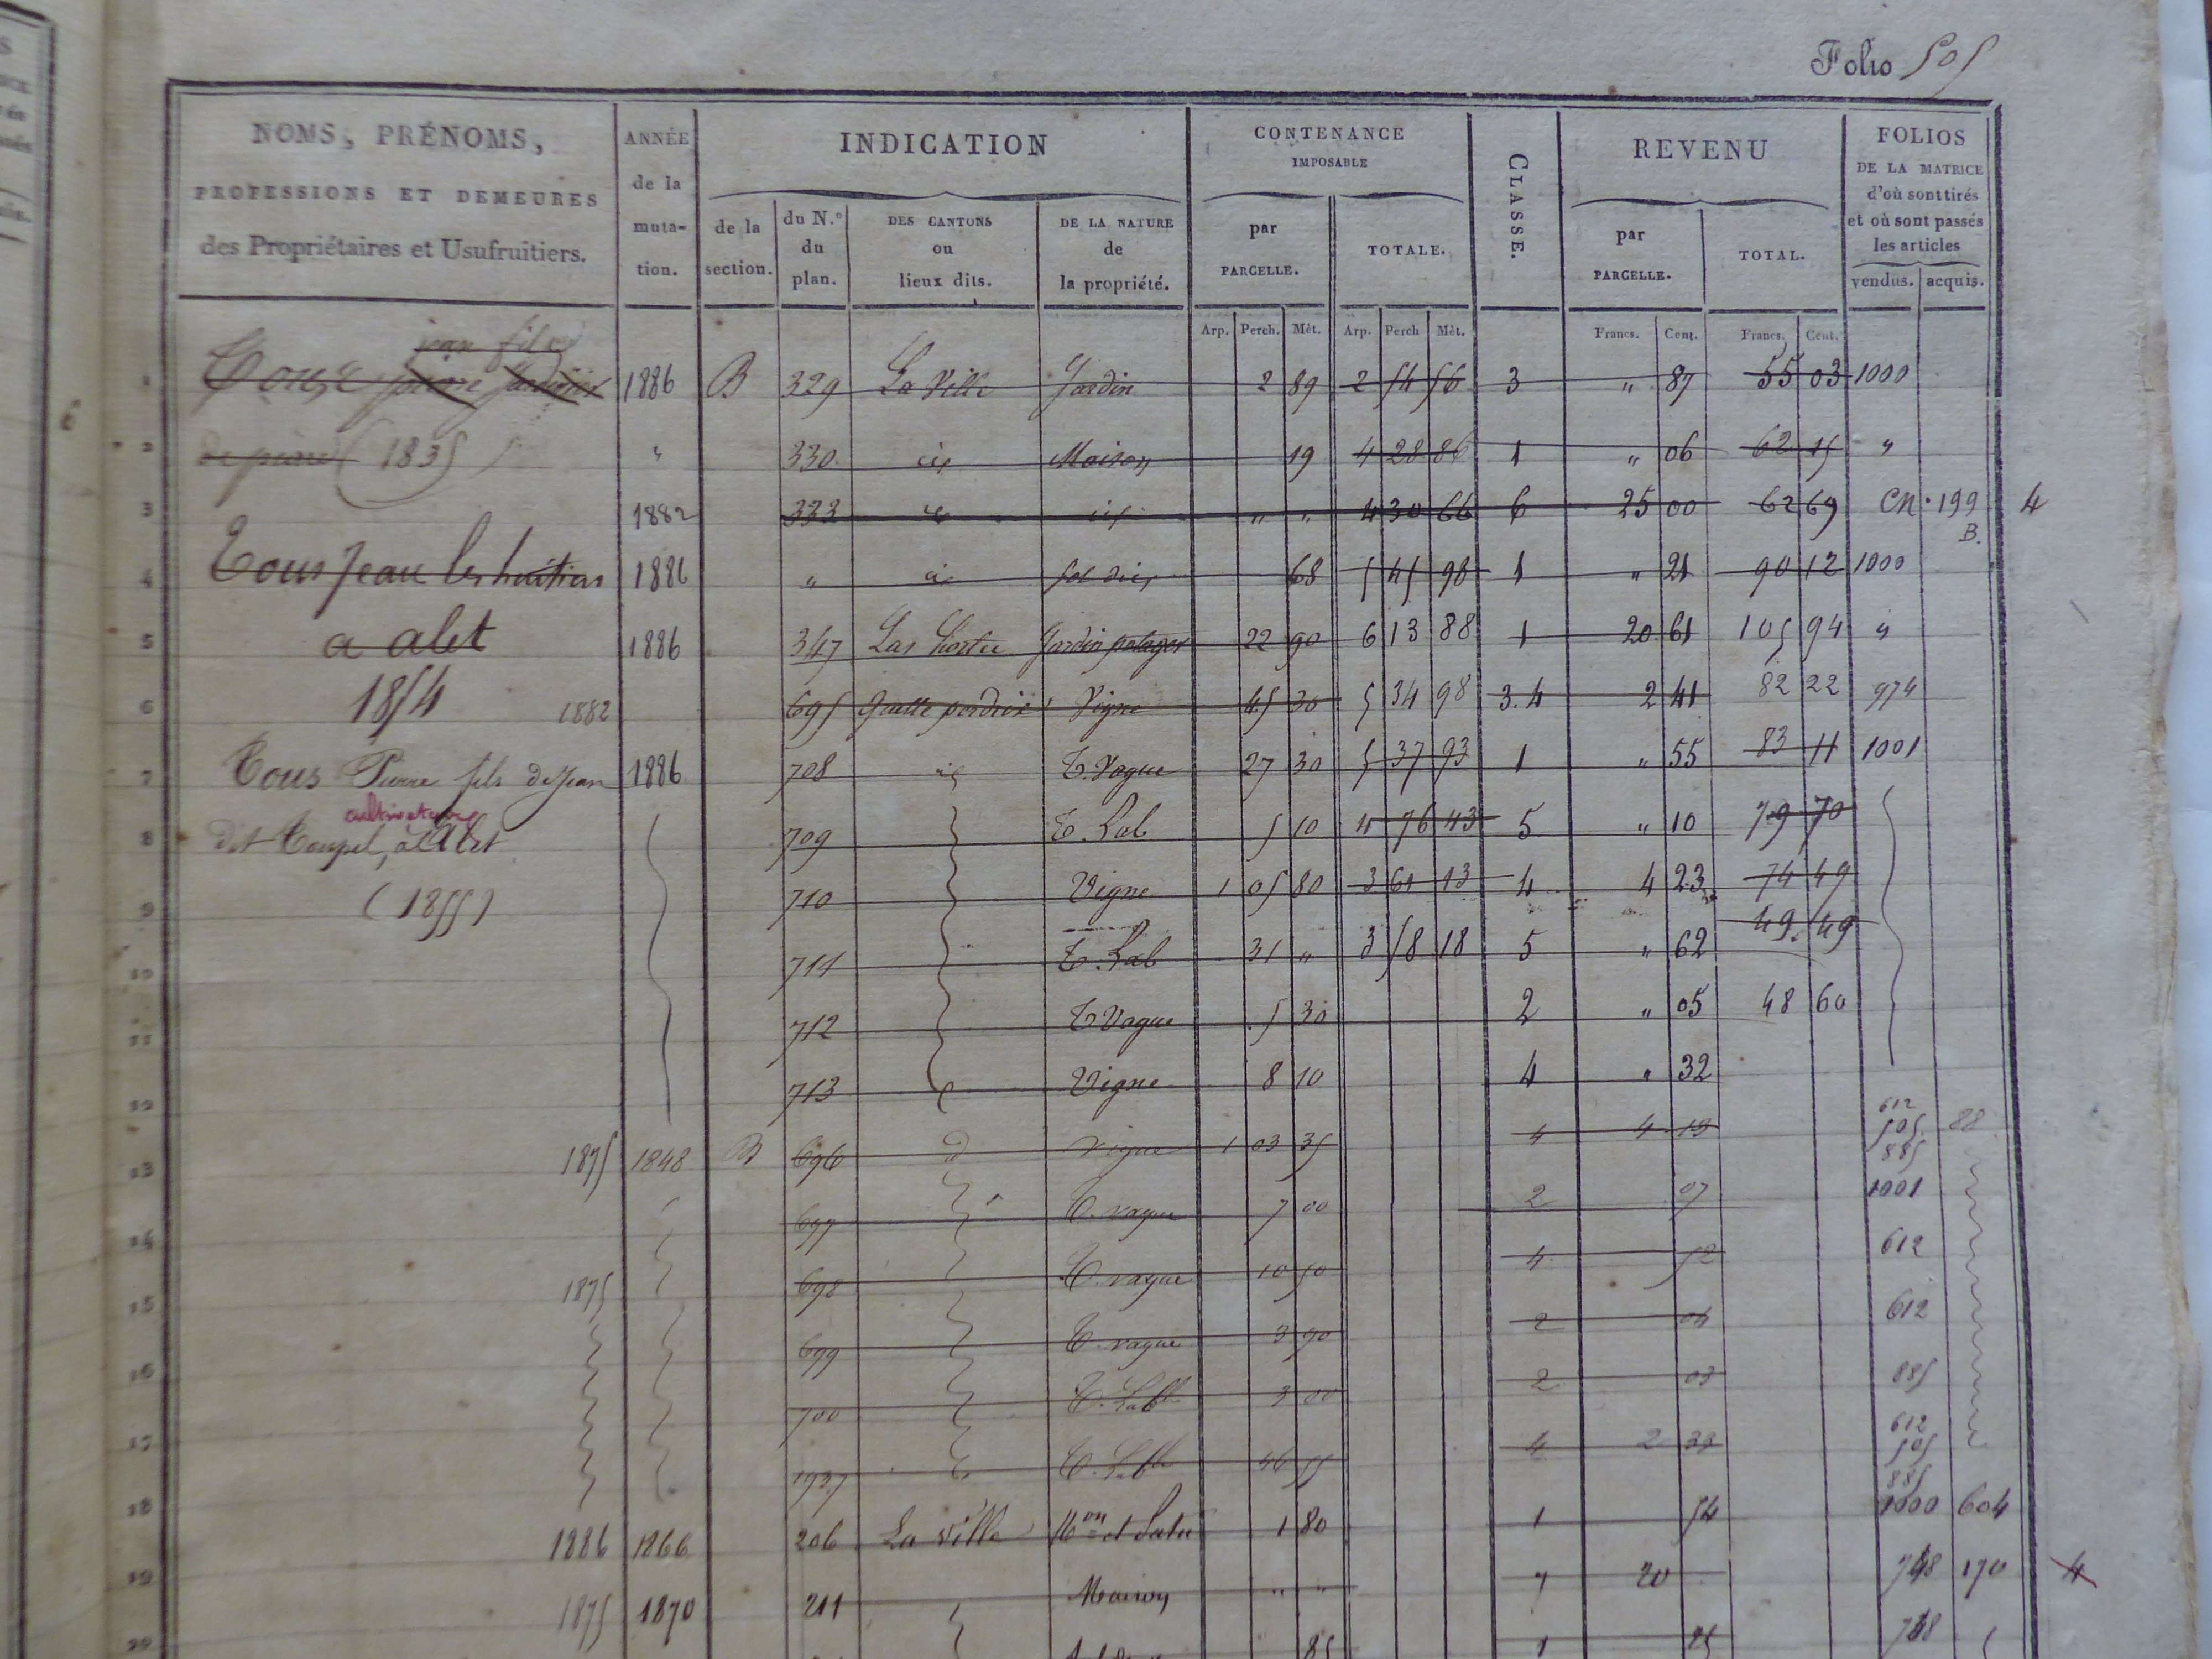 Folio 505
NOMS, PRÉNOMS,
PROFESSIONS ET DEMEURES
des Propriétaires et Usufruitiers.
ANNÉE
de la
muta-
tion.
INDICATION
de la
section.
du N.o
du
plan.
DES CANTONS
ou
lieux dits.
DE LA NATURE
de
la propriété.
CONTENANCE
IMPOSABLE
par
PARCELLE.
TOTALE.
CLASSE.
REVENU
par
PARCELLE.
TOTAL.
FOLIOS
DE LA MATRICE
d'où sont tirés
et où sont passés
les articles
vendus. acquis.
Arp. Perch. Mèt. Arp. Perch Mèt. Francs. Cent. Francs. Cent.
jean fils
1 1886 B 329 La Ville Jardin 2 89 2 54 56 3 " 87 55 03 1000
2 (1835) " 330 id Maison 19 4 28 86 1 " 06 62 15 "
3 1882 333 id id " " 4 30 66 6 25 00 62 69 CN. 199 4
B.
4 Tous Jean les héritiers 1886 " id Sol d'id 68 5 45 98 1 " 21 90 12 1000
5 a alet 1886 347 Las Hortes Jardin potager 22 90 6 13 88 1 20 61 105 94 "
6 1854 1882 695 Vigne 45 30 5 34 98 3.4 2 41 82 22 974
7 Tous Pierre fils de Jean 1886 708 id T. Vague 27 30 5 37 93 1 " 55 83 11 1001
cultivateur
8 dit Toupel, à Alet 709 T. Lab 5 10 4 76 43 5 " 10 79 70
9 (1855) 710 Vigne 1 05 80 3 61 13 4 4 23 74 49
49. 49
10 711 T. Lab 31 " 3 58 18 5 " 62
11 712 T Vague 5 30 2 " 05 48 60
12 713 Vigne 8 10 4 " 32
612
13 1875 1848 B 696 d Vigne 1 03 35 4 4 13 505 88
885
14 697 T. vague 7 00 2 07 1001
15 1875 698 T. vague 10 50 4 52 612
16 699 T. vague 3 90 2 04 612
17 700 T. Labble 3 00 2 03 885
612
18 1937 T. Labble 46 55 4 2 33 505
885
19 1886 1866 206 La Ville Mon et 1 80 1 54 1000 604
20 1875 1870 211 Maison " " 7 20 748 170 4
85 1 25 748